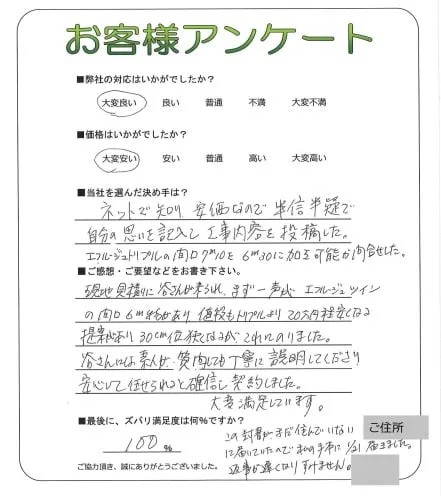 お客様アンケート
■弊社の対応はいかがでしたか？
大変良い 良い 普通 不満 大変不満
■価格はいかがでしたか？
大変安い 安い 普通 高い 大変高い
■当社を選んだ決め手は？
ネットで知り、安価なので半信半疑で
自分の思いを記入して工事内容を投稿した。
エフルージュトリプルの間口7m10を6m30に加工可能か問合せした。
■ご感想・ご要望などをお書き下さい。
現地見積りに谷さんが来られ、まず一声がエフルージュツイン
の間口6m半があり値段もトリプルより20万円程安くなる
提案があり30cm位狭くなるがこれにのりました。
谷さんには素人が質問しても丁寧に説明してくださり
安心して任せられると確信し契約しました。
大変満足しています。
■最後に、ズバリ満足度は何％ですか？
100％
ご協力頂き、誠にありがとうございました。
この封書がまだ住んでいない
に届いていたので私の手本に1/31届きました。
返事が遅くなりすみません。
ご住所